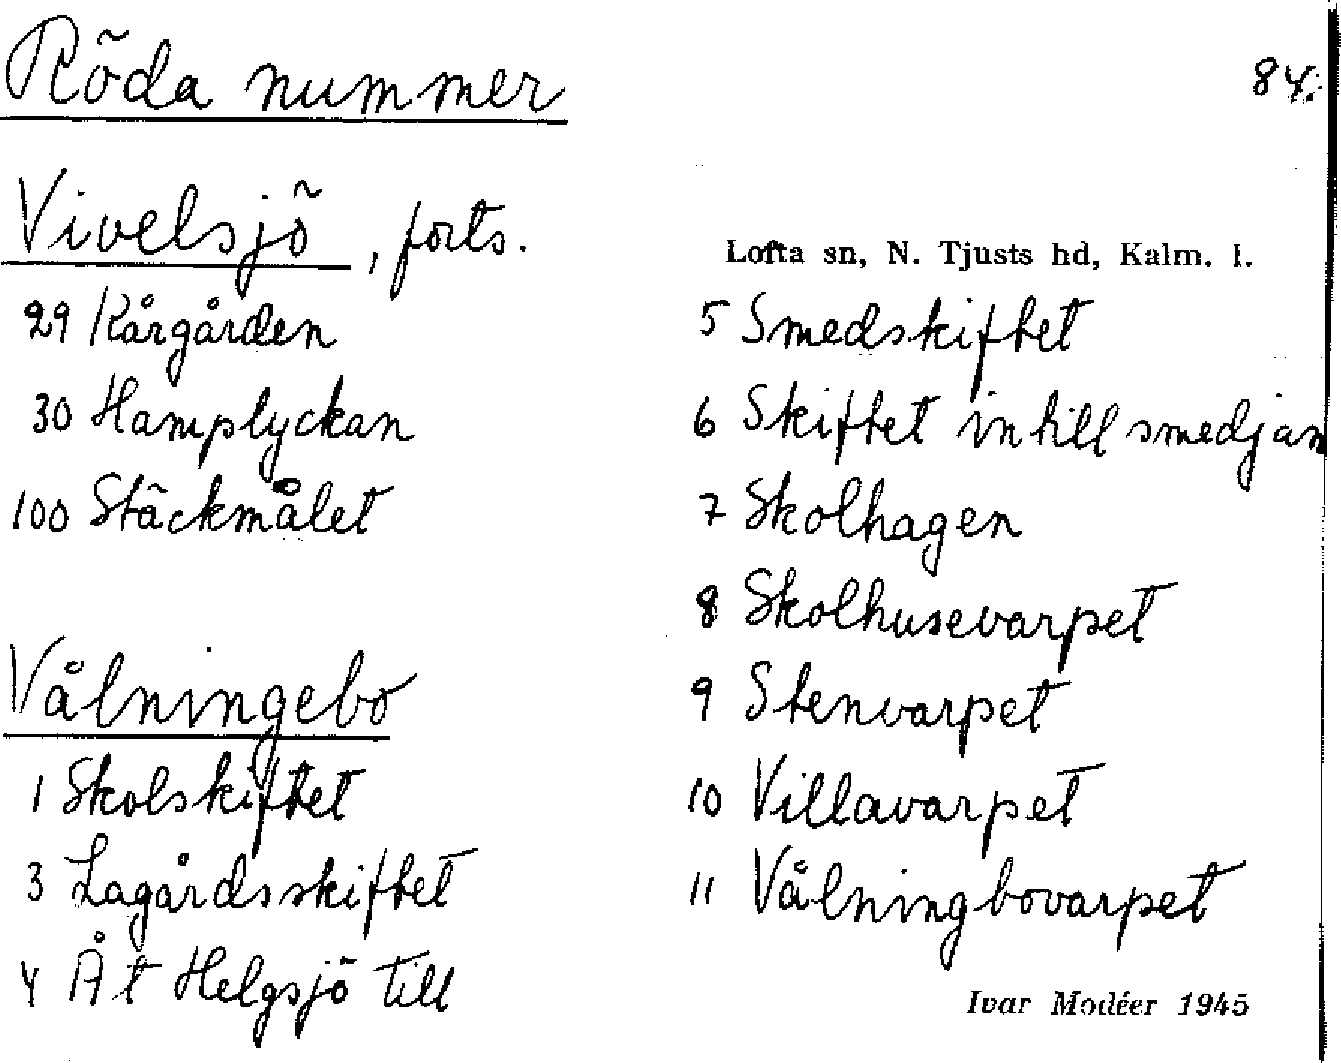 Röda nummer
84.
Vivelsjö, forts.
29 Kårgården
30 Hamplyckan
100 Stäckmålet
Vålningebo
1 Skolskiftet
3 Lagårdsskiftet
4 Åt Helgsjö till
Lofta sn, N. Tjusts hd, Kalm. l.
5 Smedskiftet
6 Skiftet intill smedjan
7 Skolhagen
8 Skolhusevarpet
9 Stenvarpet
10 Villavarpet
11 Vålningbovarpet
Ivar Modéer 1945